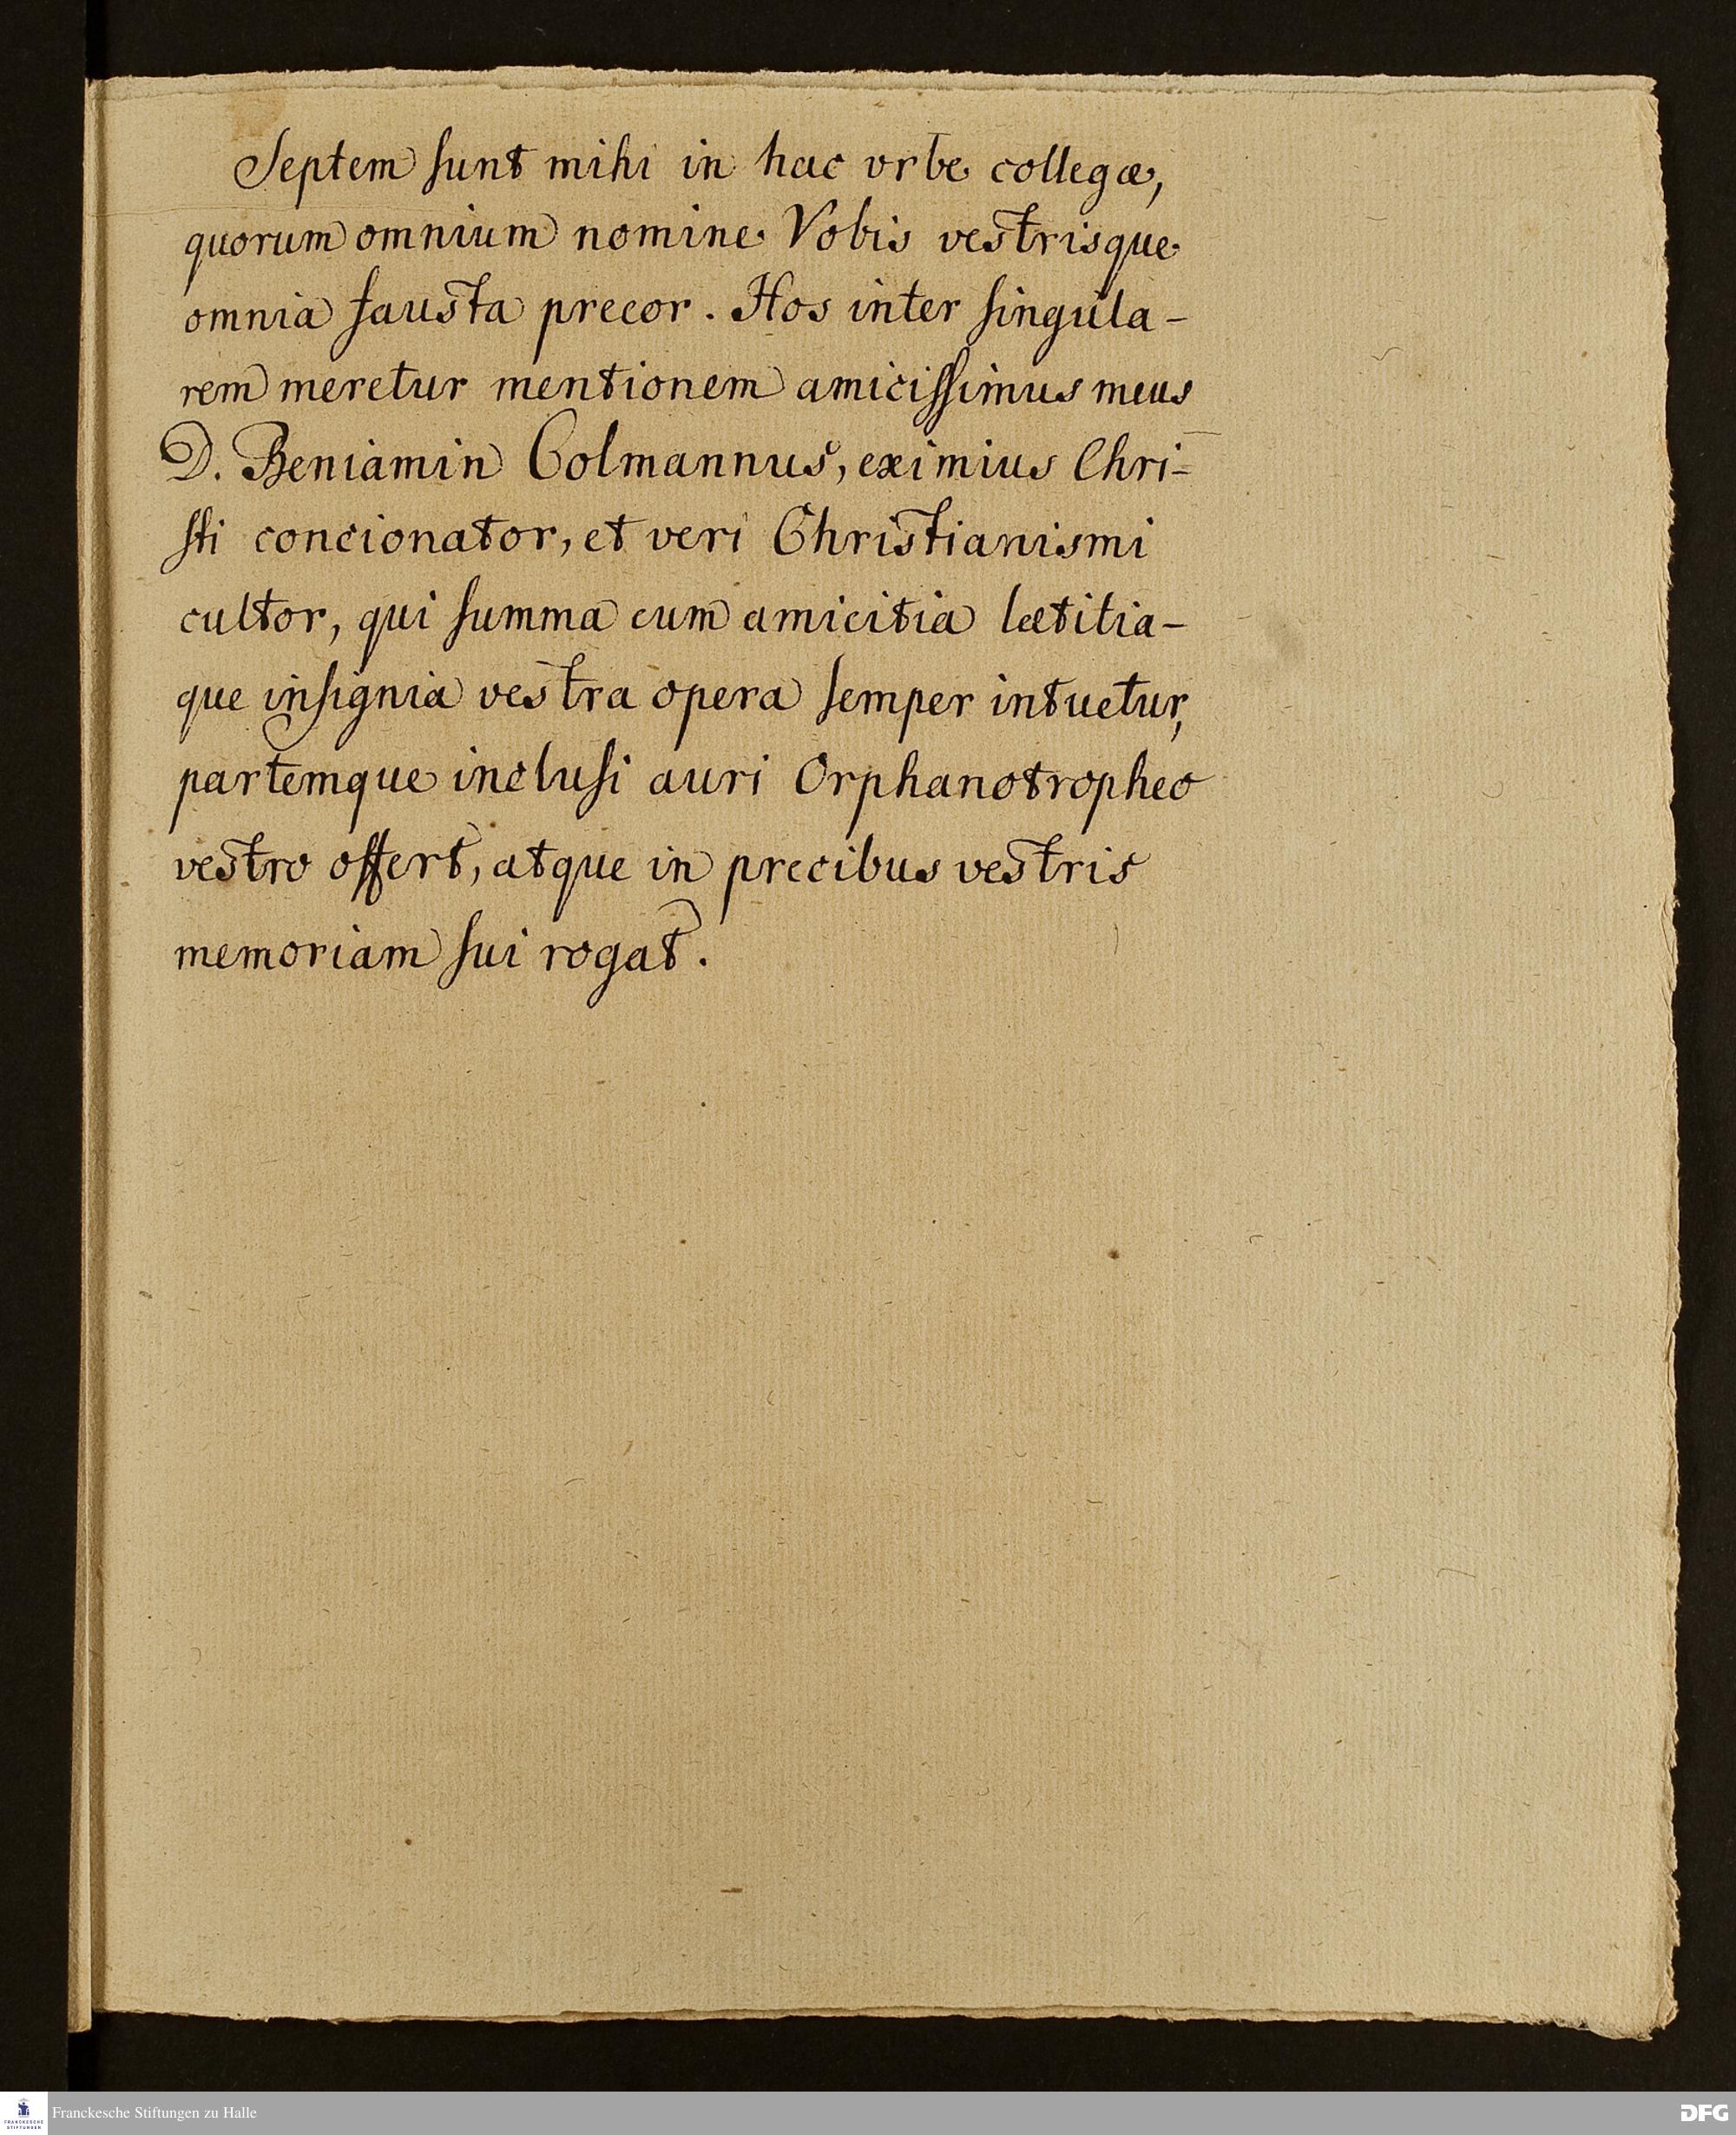 Septem sunt mihi in hac vrbe collegæ,
quorum omnium nomine Vobis vestrisque
omnia fausta precor. Hos inter singula-
rem meretur mentionem amicissimus meus
D. Beniamin Colmannus, eximius Chri-
sti concionator, et veri Christianismi
cultor, qui summa cum amicitia lætitia-
que insignia vestra opera semper intuetur,
partemque inclusi auri Orphanotropheo
vestro offert, atque in precibus vestris
memoriam sui rogat.
FRANCKESCHE
STIFTUNGEN
Franckesche Stiftungen zu Halle
DFG